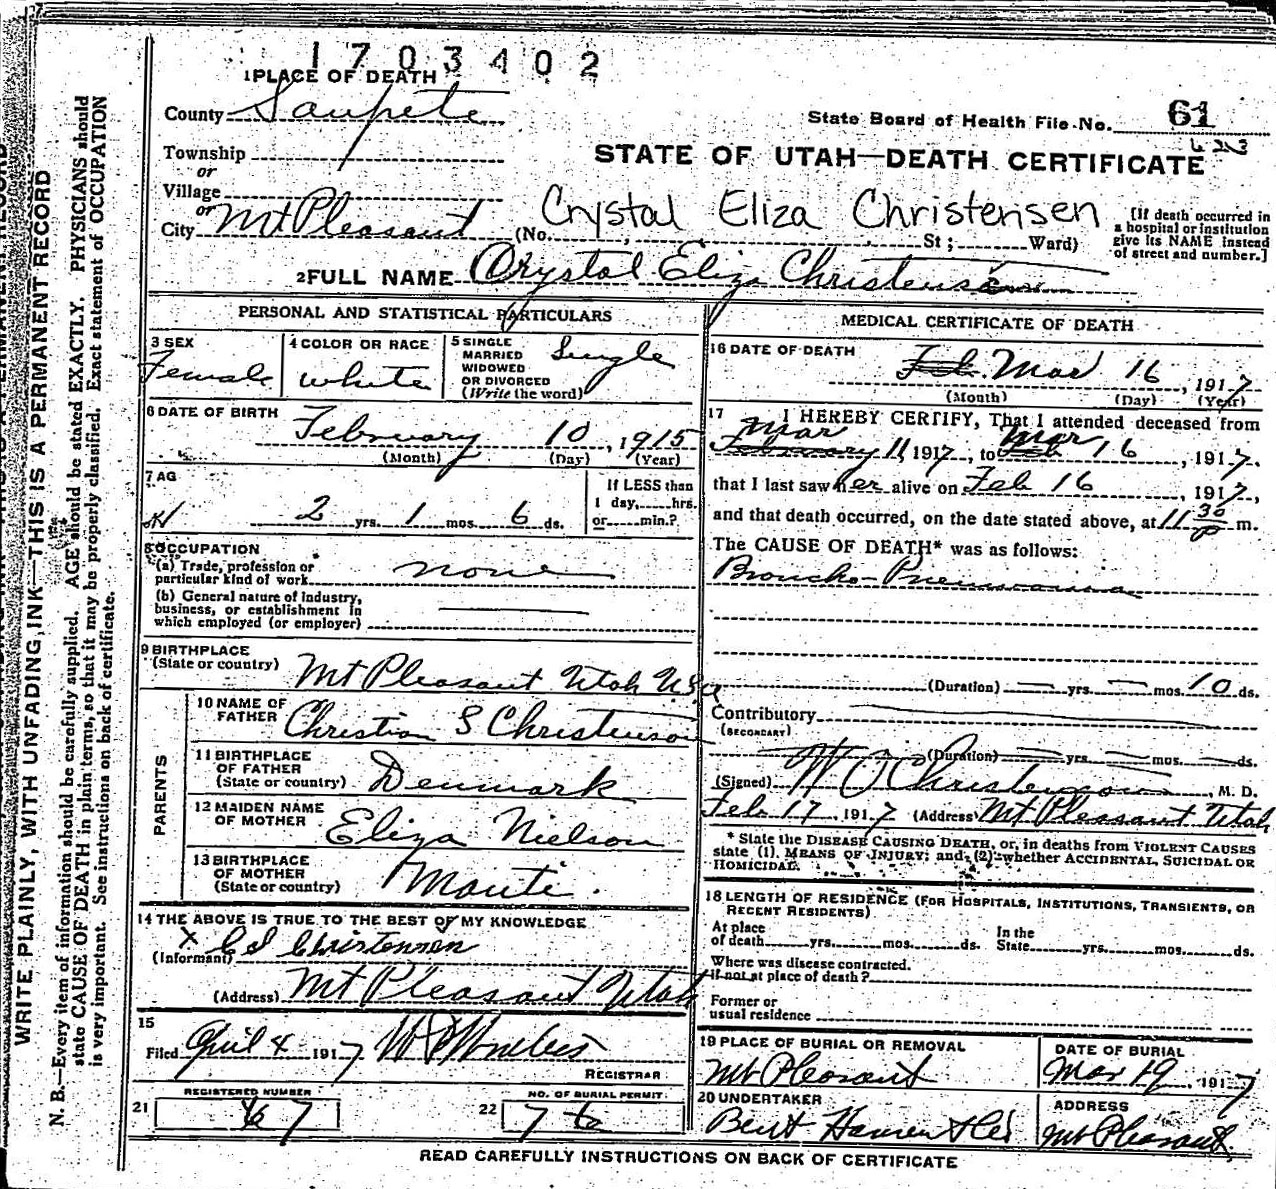 1703402
1 PLACE OF DEATH
County Sanpete
State Board of Health File No. 61
623
Township
or
Village
or
City Mt Pleasant
STATE OF UTAH—DEATH CERTIFICATE
Crystal Eliza Christensen
(No. , St ; Ward)
[If death occurred in a hospital or institution give its NAME instead of street and number.]
2 FULL NAME Crystal Eliza Christensen
PERSONAL AND STATISTICAL PARTICULARS
3 SEX
Female
4 COLOR OR RACE
white
5 SINGLE
MARRIED
WIDOWED
OR DIVORCED
(Write the word)
Single
6 DATE OF BIRTH
February 10, 1915
(Month) (Day) (Year)
7 AG
2 yrs. 1 mos. 6 ds.
If LESS than
1 day, hrs.
or min.?
8 OCCUPATION
(a) Trade, profession or
particular kind of work none
(b) General nature of industry,
business, or establishment in
which employed (or employer)
9 BIRTHPLACE
(State or country) Mt Pleasant Utah USa
PARENTS
10 NAME OF
FATHER Christian S Christenson
11 BIRTHPLACE
OF FATHER
(State or country) Denmark
12 MAIDEN NAME
OF MOTHER Eliza Nielson
13 BIRTHPLACE
OF MOTHER
(State or country) Manti.
14 THE ABOVE IS TRUE TO THE BEST OF MY KNOWLEDGE
(Informant) x C S Christensen
(Address) Mt Pleasant Utah
15
Filed April 4 1917
REGISTRAR
REGISTERED NUMBER
21 67
NO. OF BURIAL PERMIT
22 76
MEDICAL CERTIFICATE OF DEATH
16 DATE OF DEATH
Feb. Mar 16, 1917
(Month) (Day) (Year)
17 I HEREBY CERTIFY, That I attended deceased from
Mar Mar
February 11, 1917, to Feb 16, 1917,
that I last saw her alive on Feb 16, 1917,
and that death occurred, on the date stated above, at 11 30 P m.
The CAUSE OF DEATH* was as follows:
Broncho-Pneumonia
(Duration) — yrs. — mos. 10 ds.
Contributory
(SECONDARY)
(Duration) yrs. mos. ds.
(Signed) Christenson, M. D.
Feb 17, 1917 (Address) Mt Pleasant Utah
* State the DISEASE CAUSING DEATH, or, in deaths from VIOLENT CAUSES
state (1). MEANS OF INJURY; and (2) whether ACCIDENTAL, SUICIDAL OR
HOMICIDAL.
18 LENGTH OF RESIDENCE (FOR HOSPITALS, INSTITUTIONS, TRANSIENTS, OR
RECENT RESIDENTS)
At place
of death yrs. mos. ds.
In the
State yrs. mos. ds.
Where was disease contracted.
if not at place of death?
Former or
usual residence
19 PLACE OF BURIAL OR REMOVAL
Mt Pleasant
DATE OF BURIAL
Mar 19, 1917
20 UNDERTAKER
Bent Hansen
ADDRESS
Mt Pleasant.
READ CAREFULLY INSTRUCTIONS ON BACK OF CERTIFICATE
WRITE PLAINLY, WITH UNFADING, INK—THIS IS A PERMANENT RECORD
N. B.—Every item of information should be carefully supplied. AGE should be stated EXACTLY. PHYSICIANS should
state CAUSE OF DEATH in plain terms, so that it may be properly classified. Exact statement of OCCUPATION
is very important. See instructions on back of certificate.